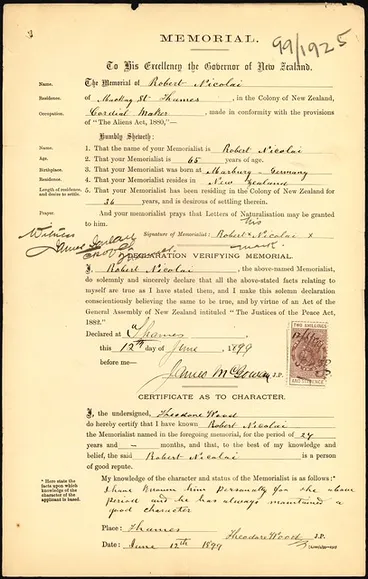 MEMORIAL.
99/1925
To His Excellency the Governor of New Zealand.
Name. The Memorial of Robert Nicolai
Residence. of Mackay St Thames, in the Colony of New Zealand,
Occupation. Cordial Maker, made in conformity with the provisions
of "The Aliens Act, 1880,"—
Humbly Sheweth:
Name. 1. That the name of your Memorialist is Robert Nicolai
Age. 2. That your Memorialist is 65 years of age.
Birthplace. 3. That your Memorialist was born at Marburg - Germany
Residence. 4. That your Memorialist resides in New Zealand
Length of residence, and desire to settle. 5. That your Memorialist has been residing in the Colony of New Zealand for
36 years, and is desirous of settling therein.
Prayer. And your Memorialist prays that Letters of Naturalisation may be granted
to him.
Witness
James
Signature of Memorialist: Robert Nicolai x
his
mark.
DECLARATION VERIFYING MEMORIAL.
I, Robert Nicolai, the above-named Memorialist,
do solemnly and sincerely declare that all the above-stated facts relating to
myself are true as I have stated them, and I make this solemn declaration
conscientiously believing the same to be true, and by virtue of an Act of the
General Assembly of New Zealand intituled "The Justices of the Peace Act,
1882."
Declared at Thames
this 12th day of June, 1899
before me—
James McGowan J.P.
TWO SHILLINGS
AND SIXPENCE
CERTIFICATE AS TO CHARACTER.
I, the undersigned, Theodore Wood
do hereby certify that I have known Robert Nicolai
the Memorialist named in the foregoing memorial, for the period of 24
years and — months, and that, to the best of my knowledge and
belief, the said Robert Nicolai is a person
of good repute.
* Here state the facts upon which knowledge of the character of the applicant is based.
My knowledge of the character and status of the Memorialist is as follows:*
I have known him personally for the above
period and he has always maintained a
good character
Place: Thames
Theodore Wood J.P.
Date: June 12th 1899